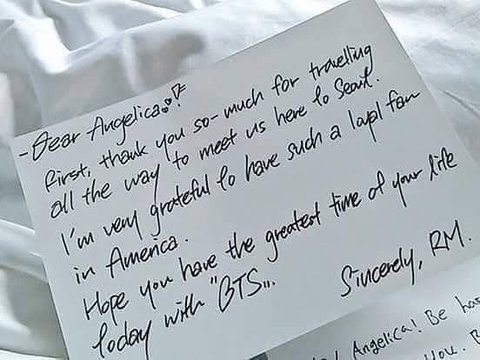 -Dear Angelica..!
First, thank you so-much for travelling
all the way to meet us here to Seoul.
I'm very grateful to have such a loyal fan
in America.
Hope you have the greatest time of your life
today with "BTS...
Sincerely, RM.
Angelica! Be